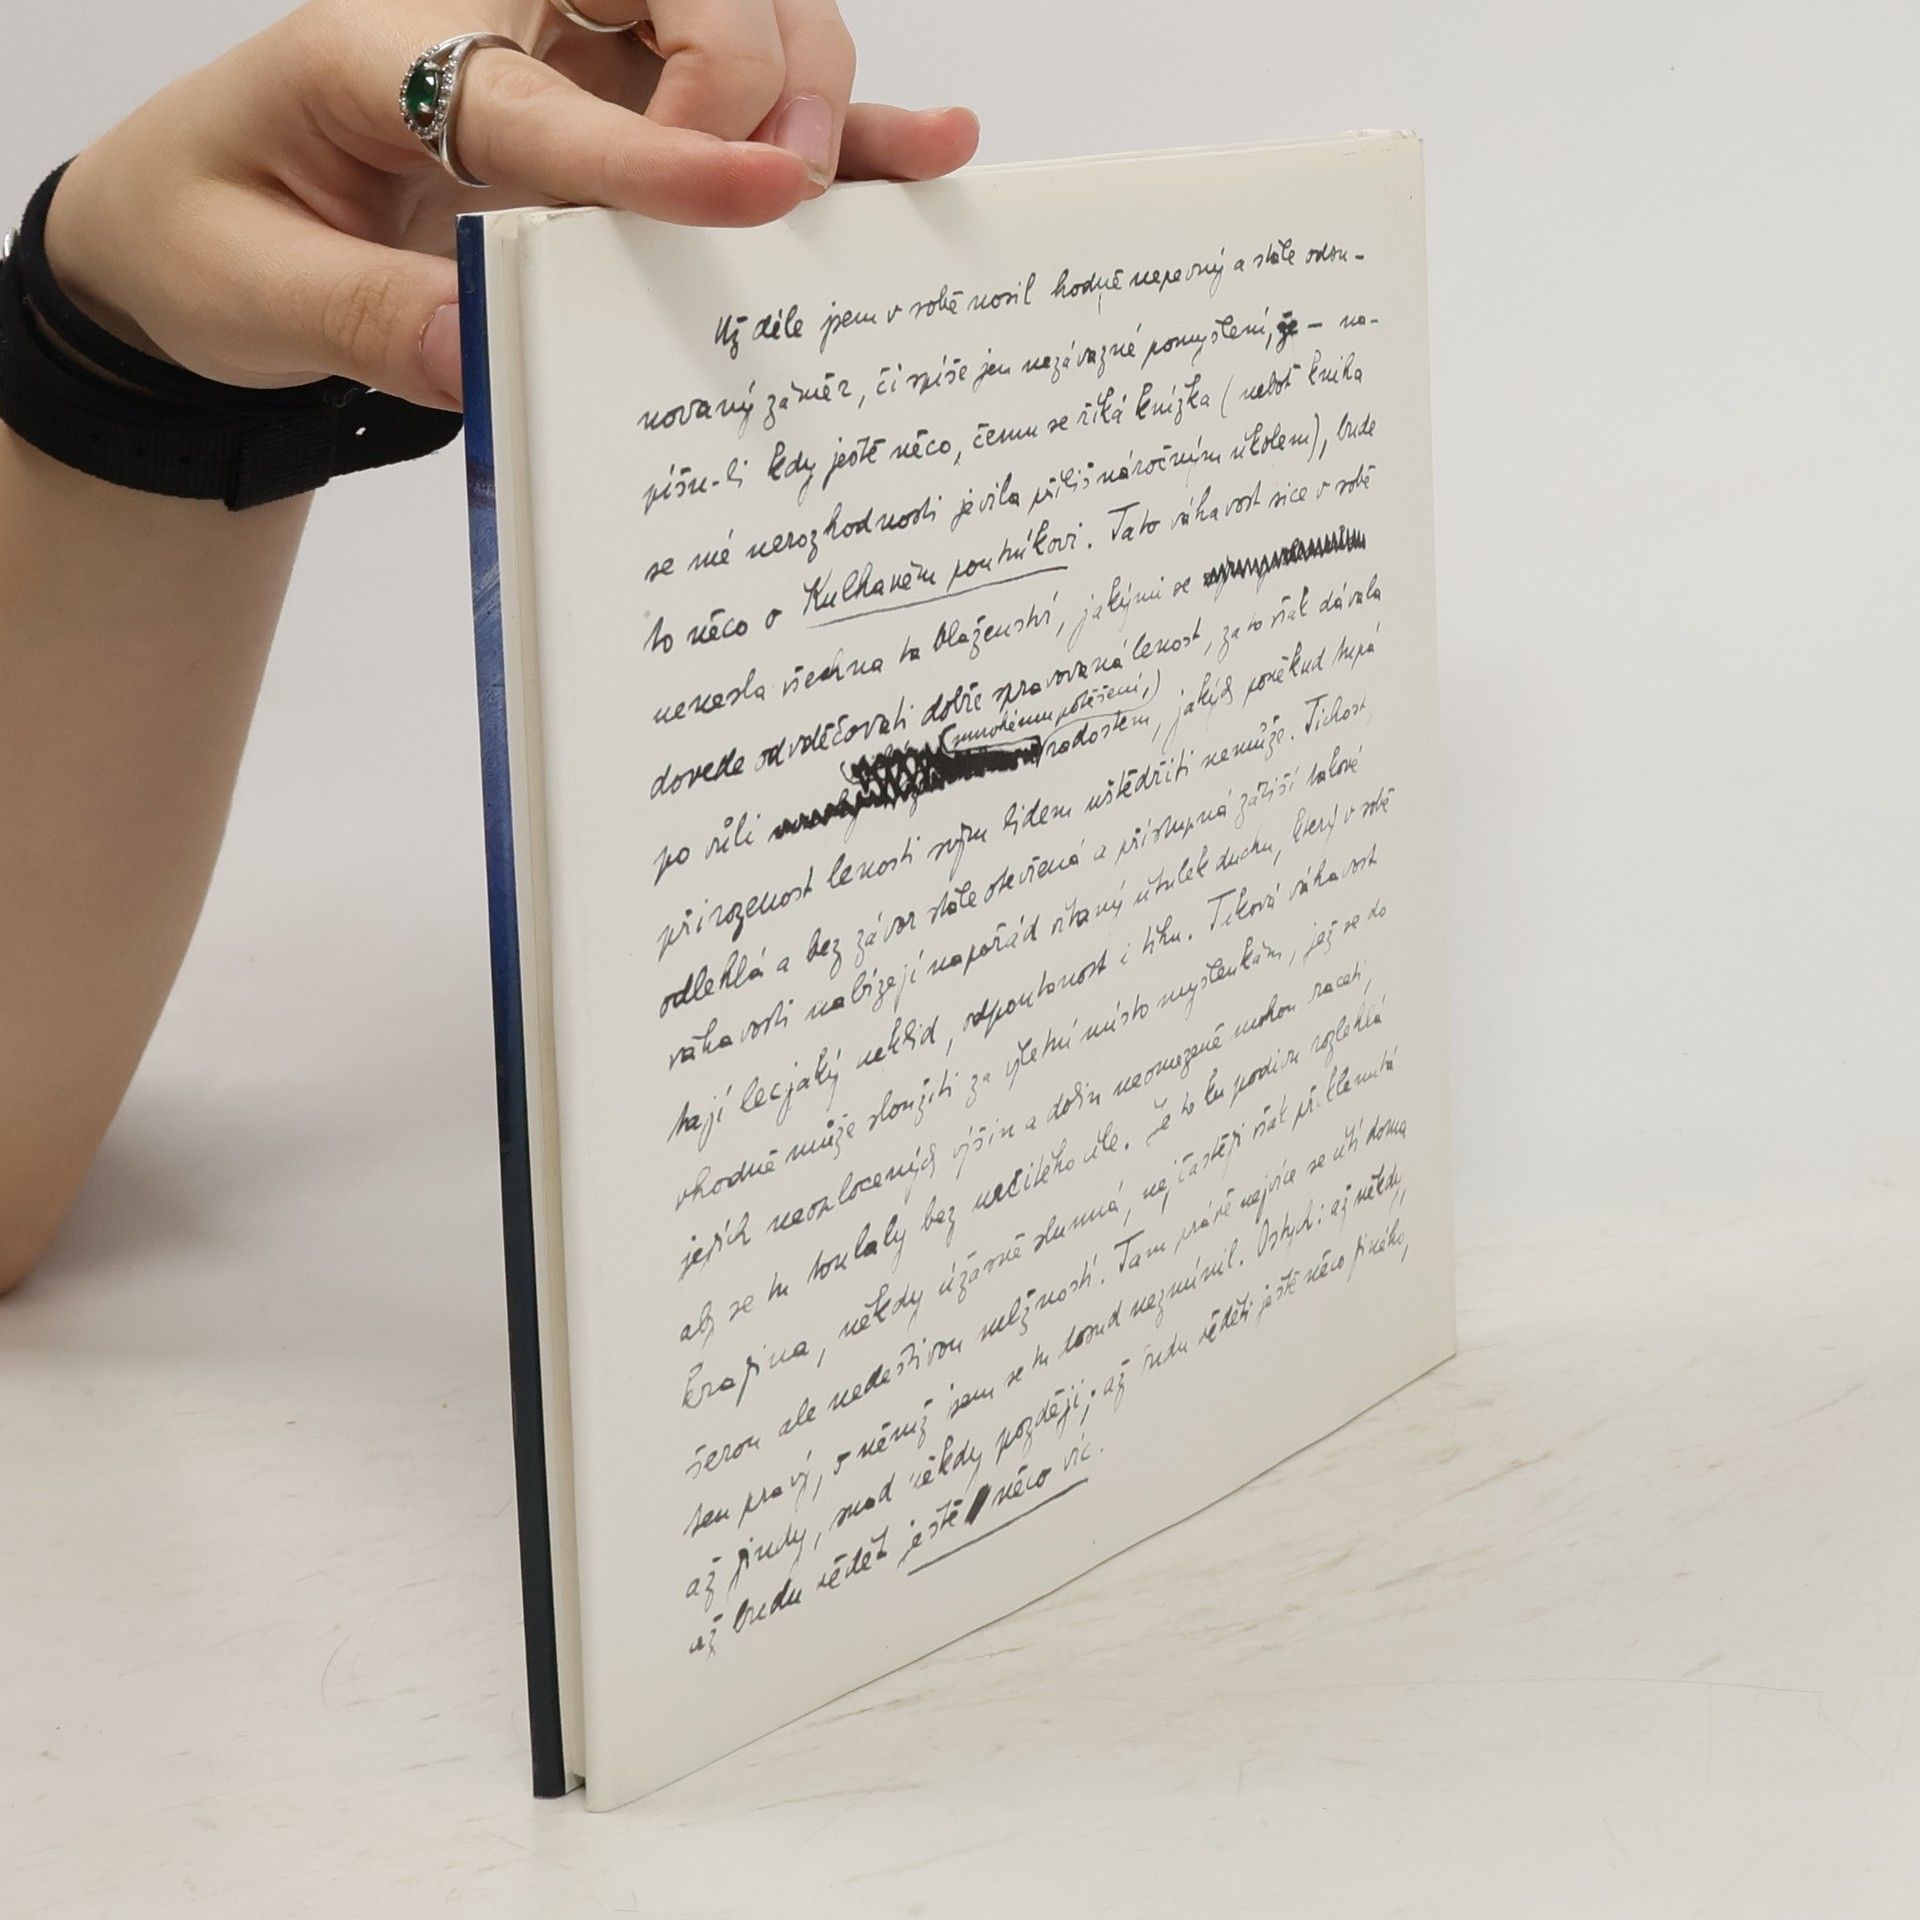 Už déle jsem v sobě nosil hodně nepevný a stále odsu-
novaný záměr, či spíše jen nezávazné pomyšlení, že – na-
píšu-li kdy ještě něco, čemu se říká knížka (neboť kniha
se mé nerozhodnosti jevila příliš náročným úkolem), bude
to něco o Kulhavém poutníkovi. Tato váhavost sice v sobě
nenesla všechna ta blaženství, jakými se
dovede odvděčovati dobře spravovaná lenost, za to však dávala
po vůli (mnohému potěšení,) radostem, jakých poněkud tupá
přirozenost lenosti svým lidem uštědřiti nemůže. Tichost,
odlehlá a bez závor stále otevřená a přístupná zátiší takové
váhavosti nabízejí napořád vítaný útulek duchu, který v sobě
tají lecjaký neklid, odpoutanost i tíhu. Taková váhavost
vhodně může sloužiti za výletní místo myšlenkám, jež se do
jejích neozlocených výšin a dolin neomezeně mohou vraceti,
aby se tu toulaly bez určitého cíle. Je to tu podivu rozlehlá
krajina, někdy úžasně slunná, nejčastěji však překlenutá
šerou ale nedeštivou mlžností. Tam právě nejvíce se cítí doma
ten pravý, o němž jsem se tu dosud nezmínil. Ostych: až někdy,
až jindy, snad někdy později; až budu věděti ještě něco jiného,
až budu vědět ještě něco víc.